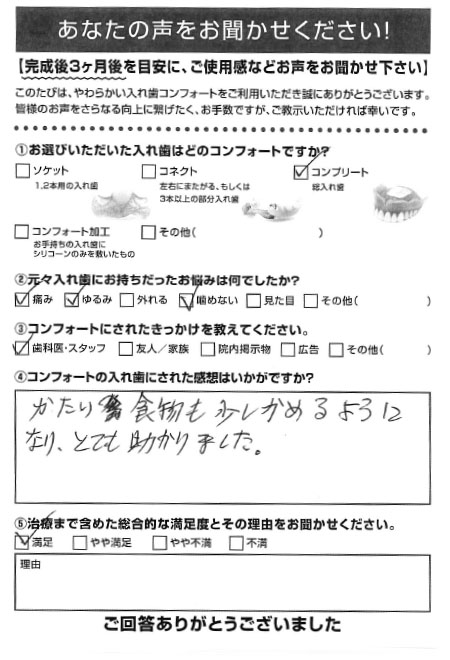 あなたの声をお聞かせください!
【完成後3ヶ月後を目安に、ご使用感などお声をお聞かせ下さい】
このたびは、やわらかい入れ歯コンフォートをご利用いただき誠にありがとうございます。
皆様のお声をさらなる向上に繋げたく、お手数ですが、ご教示いただければ幸いです。
①お選びいただいた入れ歯はどのコンフォートですか?
□ソケット □コネクト ☑コンプリート
1,2本用の入れ歯 左右にまたがる、もしくは 総入れ歯
3本以上の部分入れ歯
□コンフォート加工 □その他( )
お手持ちの入れ歯に
シリコーンのみを敷いたもの
②元々入れ歯にお持ちだったお悩みは何でしたか?
☑痛み ☑ゆるみ □外れる ☑噛めない □見た目 □その他( )
③コンフォートにされたきっかけを教えてください。
☑歯科医・スタッフ □友人/家族 □院内掲示物 □広告 □その他( )
④コンフォートの入れ歯にされた感想はいかがですか?
かたい食物も少しかめるように
なり、とても助かりました。
⑤治療まで含めた総合的な満足度とその理由をお聞かせください。
☑満足 □やや満足 □やや不満 □不満
理由
ご回答ありがとうございました